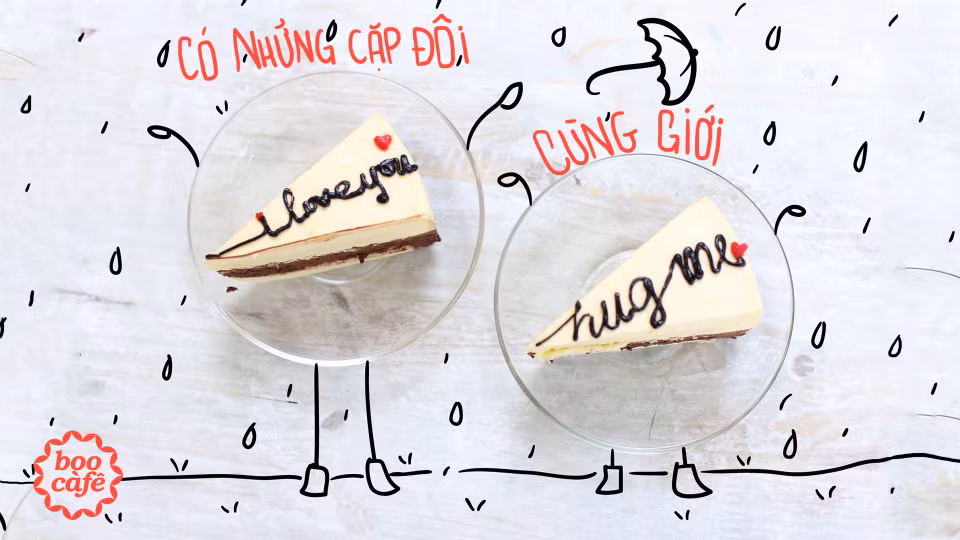 CÓ NHỮNG CẶP ĐÔI
CÙNG GIỚI
i love you
hug me
boo
càfê